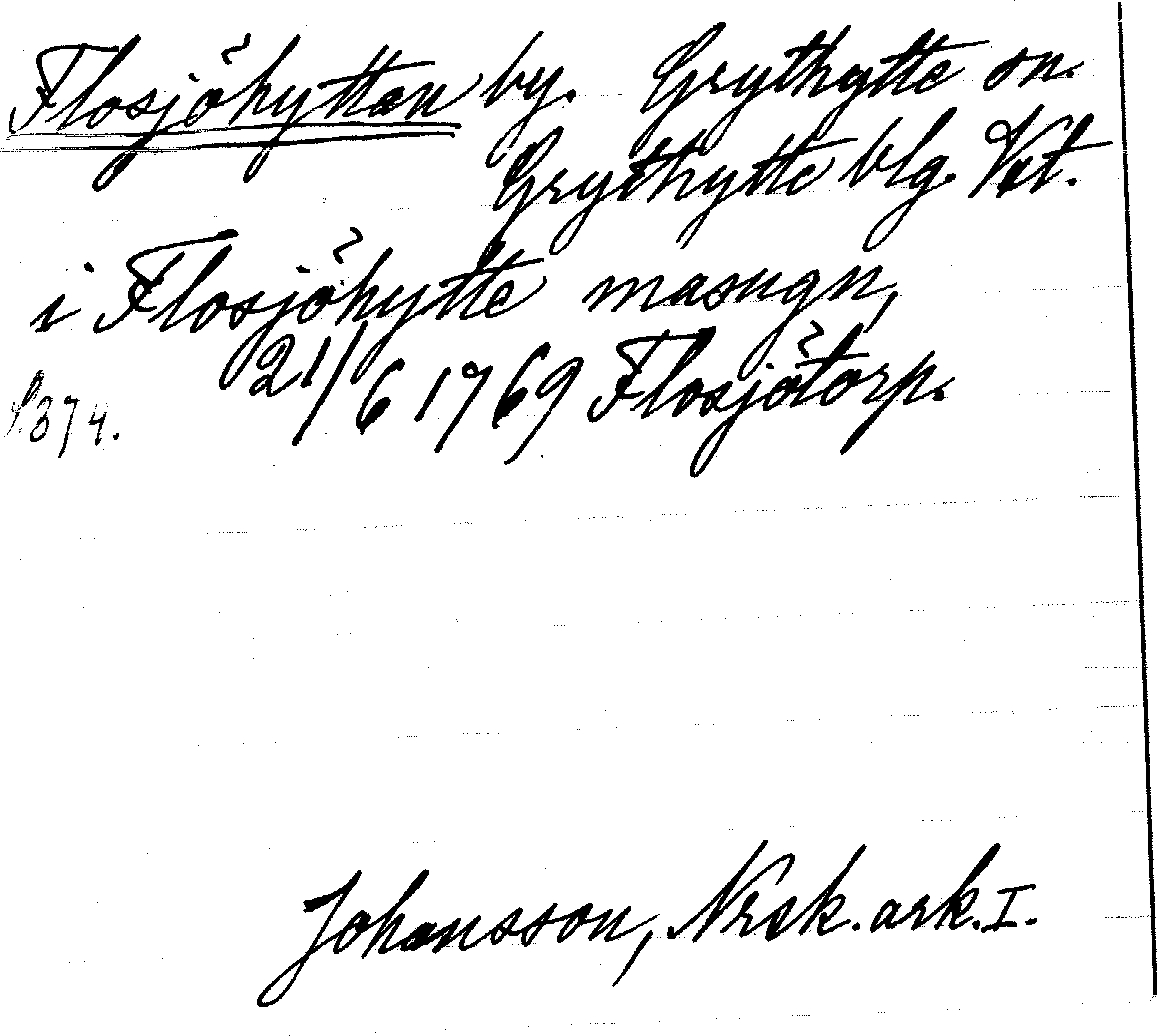 Flosjöhyttan by. Grythytte sn.
Grythytte blg. Vst.
i Flosjöhytte masugn,
21/6 1769 Flosjötorp.
s. 374.
Johansson, Nrsk. ark. I.